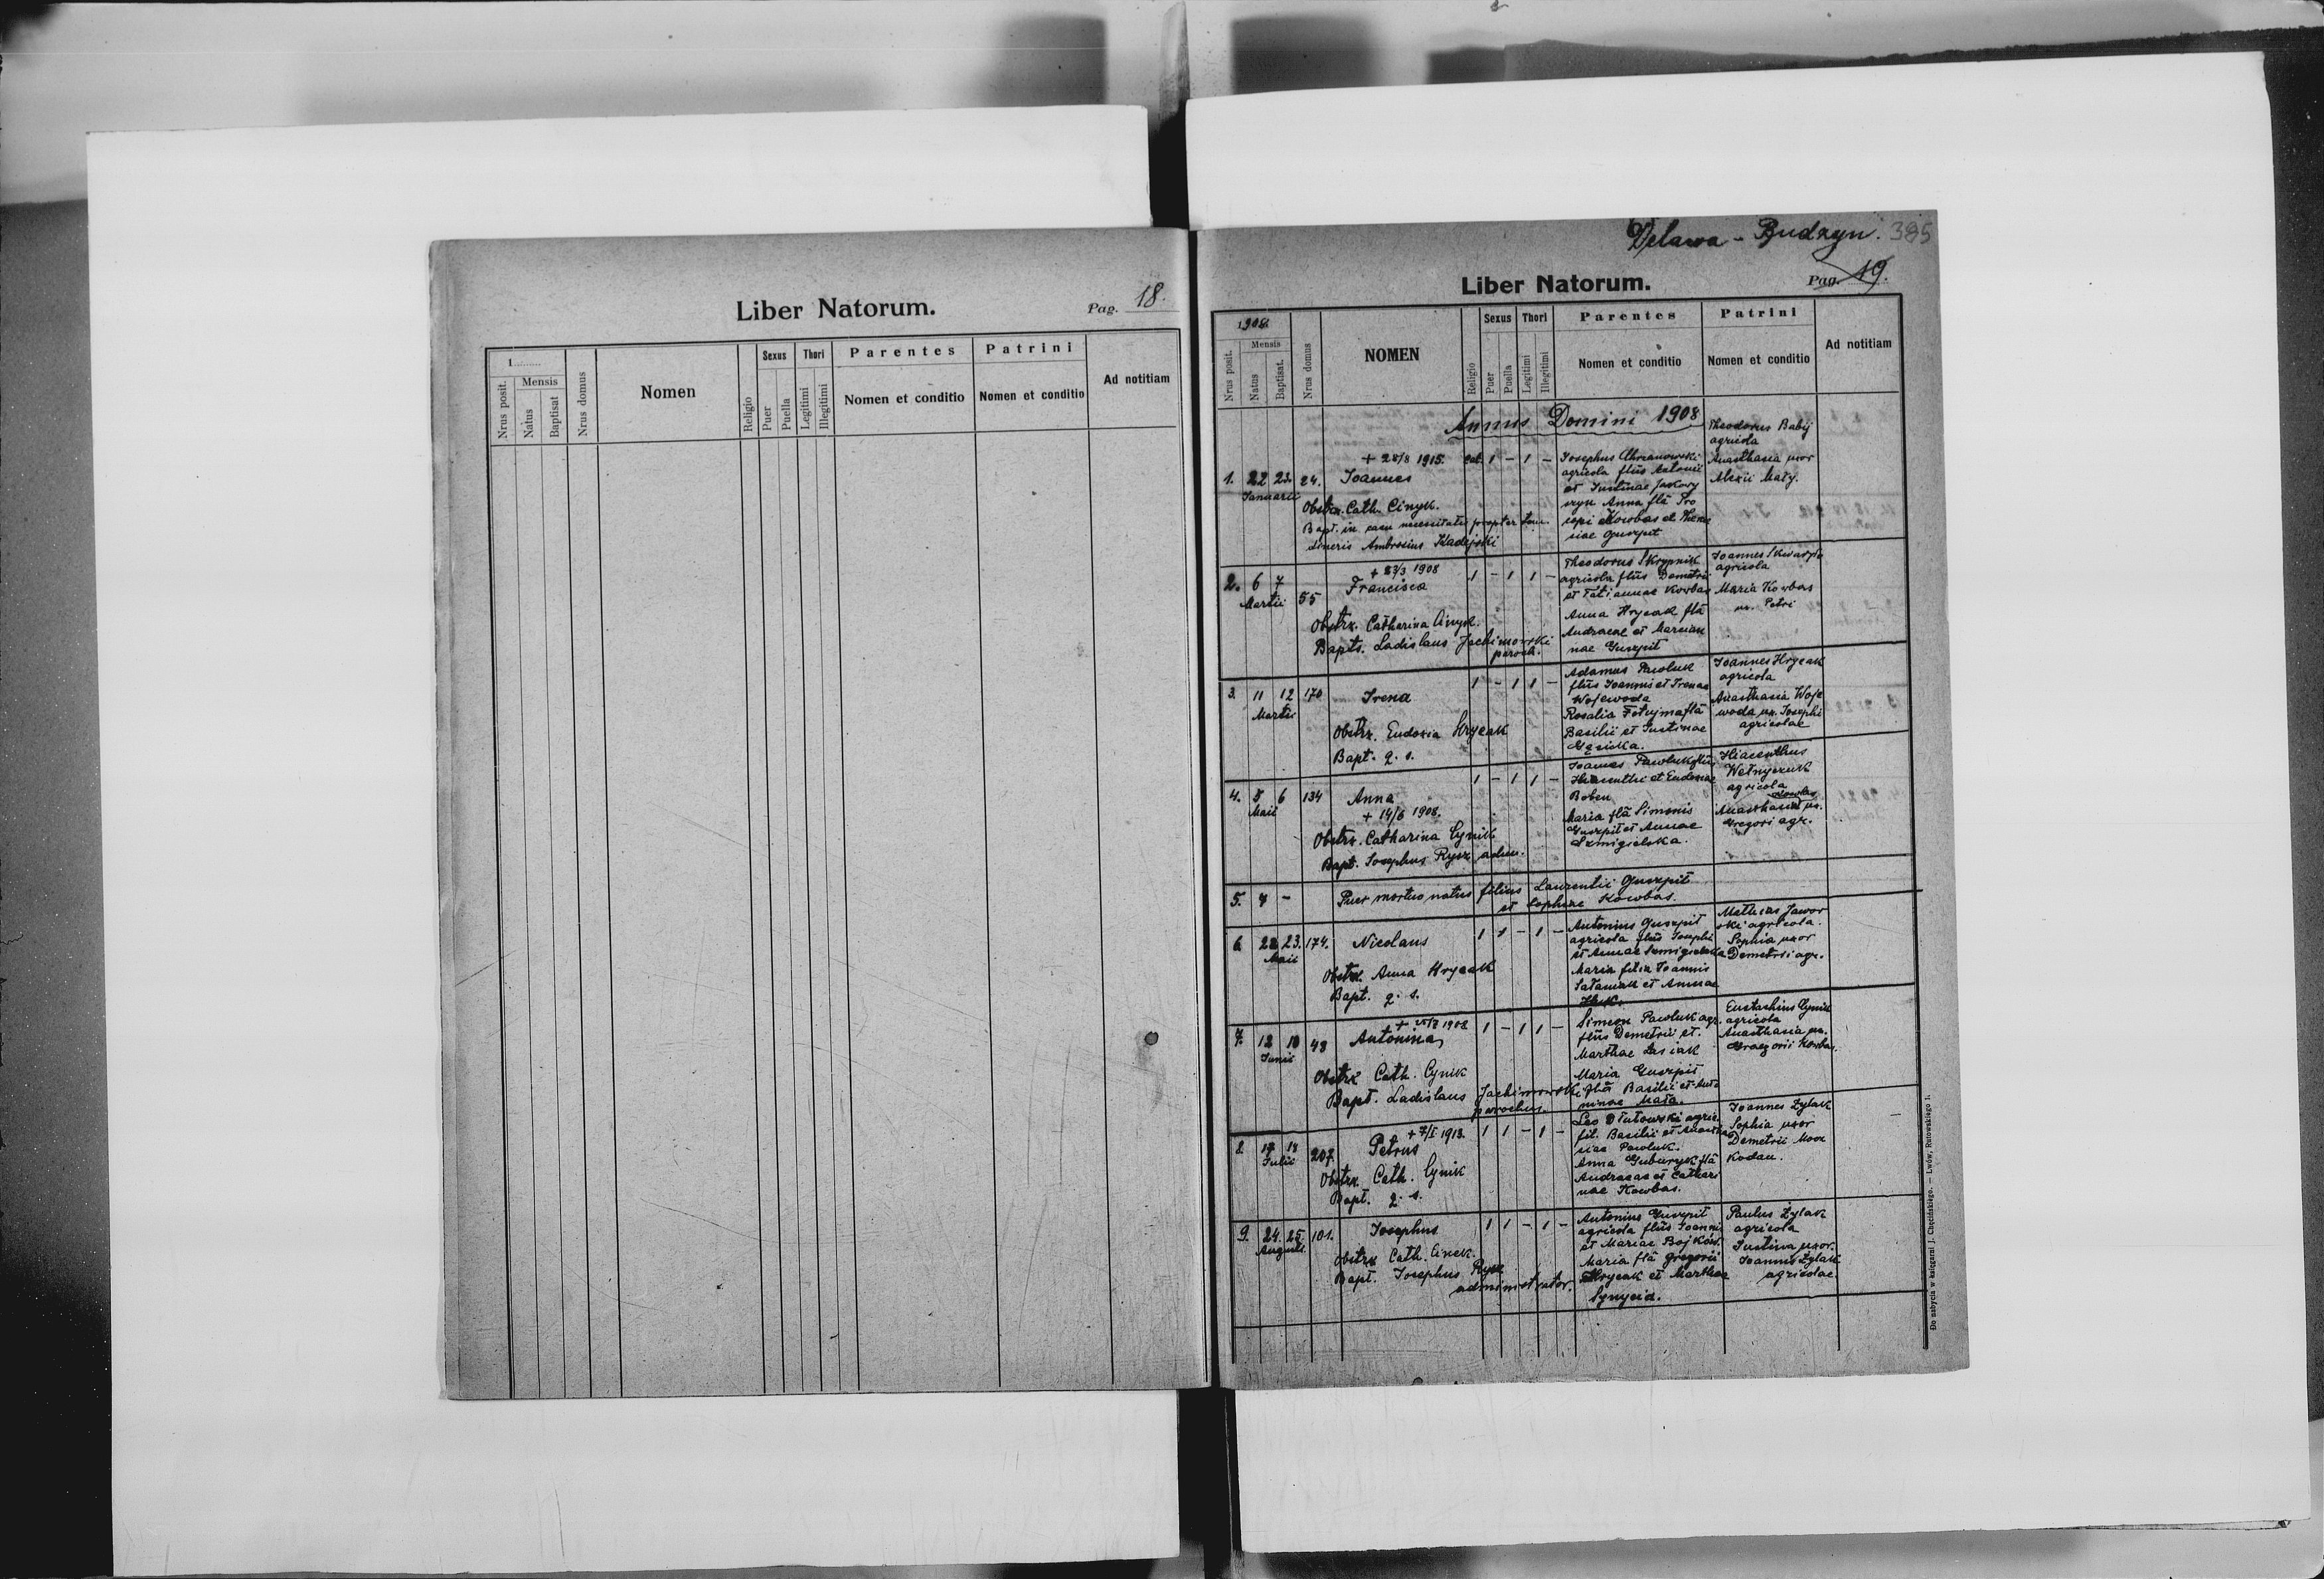 Liber Natorum.
Pag. 18.
1
Nrus posit.
Mensis
Natus
Baptisat
Nrus domus
Nomen
Religio
Sexus
Puer
Puella
Thori
Legitimi
Illegitimi
Parentes
Nomen et conditio
Patrini
Nomen et conditio
Ad notitiam
Delawa - Budzyn. 385
Liber Natorum.
Pag. 19.
1908.
Nrus posit.
Mensis
Natus
Baptisat.
Nrus domus
NOMEN
Religio
Sexus
Puer
Puella
Thori
Legitimi
Illegitimi
Parentes
Nomen et conditio
Patrini
Nomen et conditio
Ad notitiam
Annus Domini 1908
1. 22 23. 24.
Januarii
+ 28/8 1915.
Joannes
Obstr. Cath. Cinyk.
Bapt. in casu necessitatis propter
Ambrosius Kadejski
cat. 1 - 1 -
Josephus
agricola flius Antonii
et Justinae
Anna flā Pro
copi Kowbas et
siae Guszpit
Theodorus Babij
agricola
Anasthasia uxor
Alexii Mały.
2. 6 7 55
Martii
+ 23/3 1908
Francisca
Obstrx. Catharina Cinyk.
Bapts. Ladislaus Jachimowski
paroch.
1 - 1 1 -
Theodorus Skrypnik
agricola flius Demetrii
et Tatiannae Kowbas
Anna Hrycak flā
Andraeae et Marian
nae Guszpit
Joannes
agricola
Maria Kowbas
ux. Petri
3. 11 12 170
Martii
Irena
Obstrx. Eudoxia Hrycak
Bapt. q. s.
1 - 1 1 -
Adamus Pawluk
flius Joannis et Irenae
Wojewoda
Rosalia flā
Basilii et Justinae
Joannes Hrycak
agricola
Anasthasia Woje
woda ux. Josephi
agricolae
4. 5 6 134
Maii
Anna
+ 14/6 1908.
Obstrx. Catharina Cynik
Bapt. Josephus Rysz adm.
1 - 1 1 -
Joannes Pawluk flius
Hiacenthi et Eudoxiae
Boben
Maria flā Simonis
Guszpit et Annae
Szmigielska.
Hiacenthus
Wełnyczuk
agricola
Anasthasia ux.
Gregori agr.
5. 7 -
Puer mortuo natus filius Laurentii Guszpit
et Sophiae Kowbas.
6. 22 23. 174.
Maii
Nicolaus
Obstrx. Anna Hrycak
Bapt. q. s.
1 1 - 1 -
Antonius Guszpit
agricola flius Josephi
et Annae Szmigielska
Maria filia Joannis
Sałamak et Annae
Mathias Jawor
ski agricola.
Sophia uxor
Demetrii agr.
7. 12 48
Junii
Antonina
Obstrx Cath. Cynik
Bapt. Ladislaus Jachimowski
parochus.
1 - 1 1 -
Simeon Pawluk agr.
flius Demetrii et
Marthae Lesiak
Maria Guszpit
flā Basilii et Anto
ninae Mała.
Eustachius Cynik
agricola
Anasthasia ux.
Graegorii Kowbas.
8. 17 18 207
Julii
+ 7/I 1913.
Petrus
Obstrx Cath. Cynik
Bapt. q. s.
1 1 - 1 -
Leo Dłutowski agric.
fil. Basilii et Anastha
siae Pawluk.
Anna flā
Andraeae et Cathari
nae Kowbas.
Joannes Żylak
Sophia uxor
Demetrii
9. 24. 25. 101.
Augusti.
Josephus
Obstrx Cath. Cinek.
Bapt. Josephus Rysz
administrator.
1 1 - 1 -
Antonius Guszpit
agricola flius Joannis
et Mariae Bojków.
Maria flā Gregorii
Hrycak et Marthae
Synycia.
Paulus Żylak
agricola
Justina uxor.
Joannis Żylak
agricolae.
Do nabycia w księgarni J. Chęcińskiego. — Lwów, Rutowskiego 1.